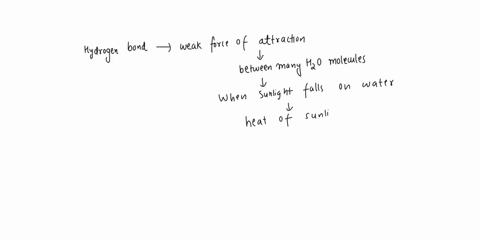 Hydrogen bond → weak force of attraction
↓
between many H2O molecules
↓
When sunlight falls on water
↓
heat of sunli